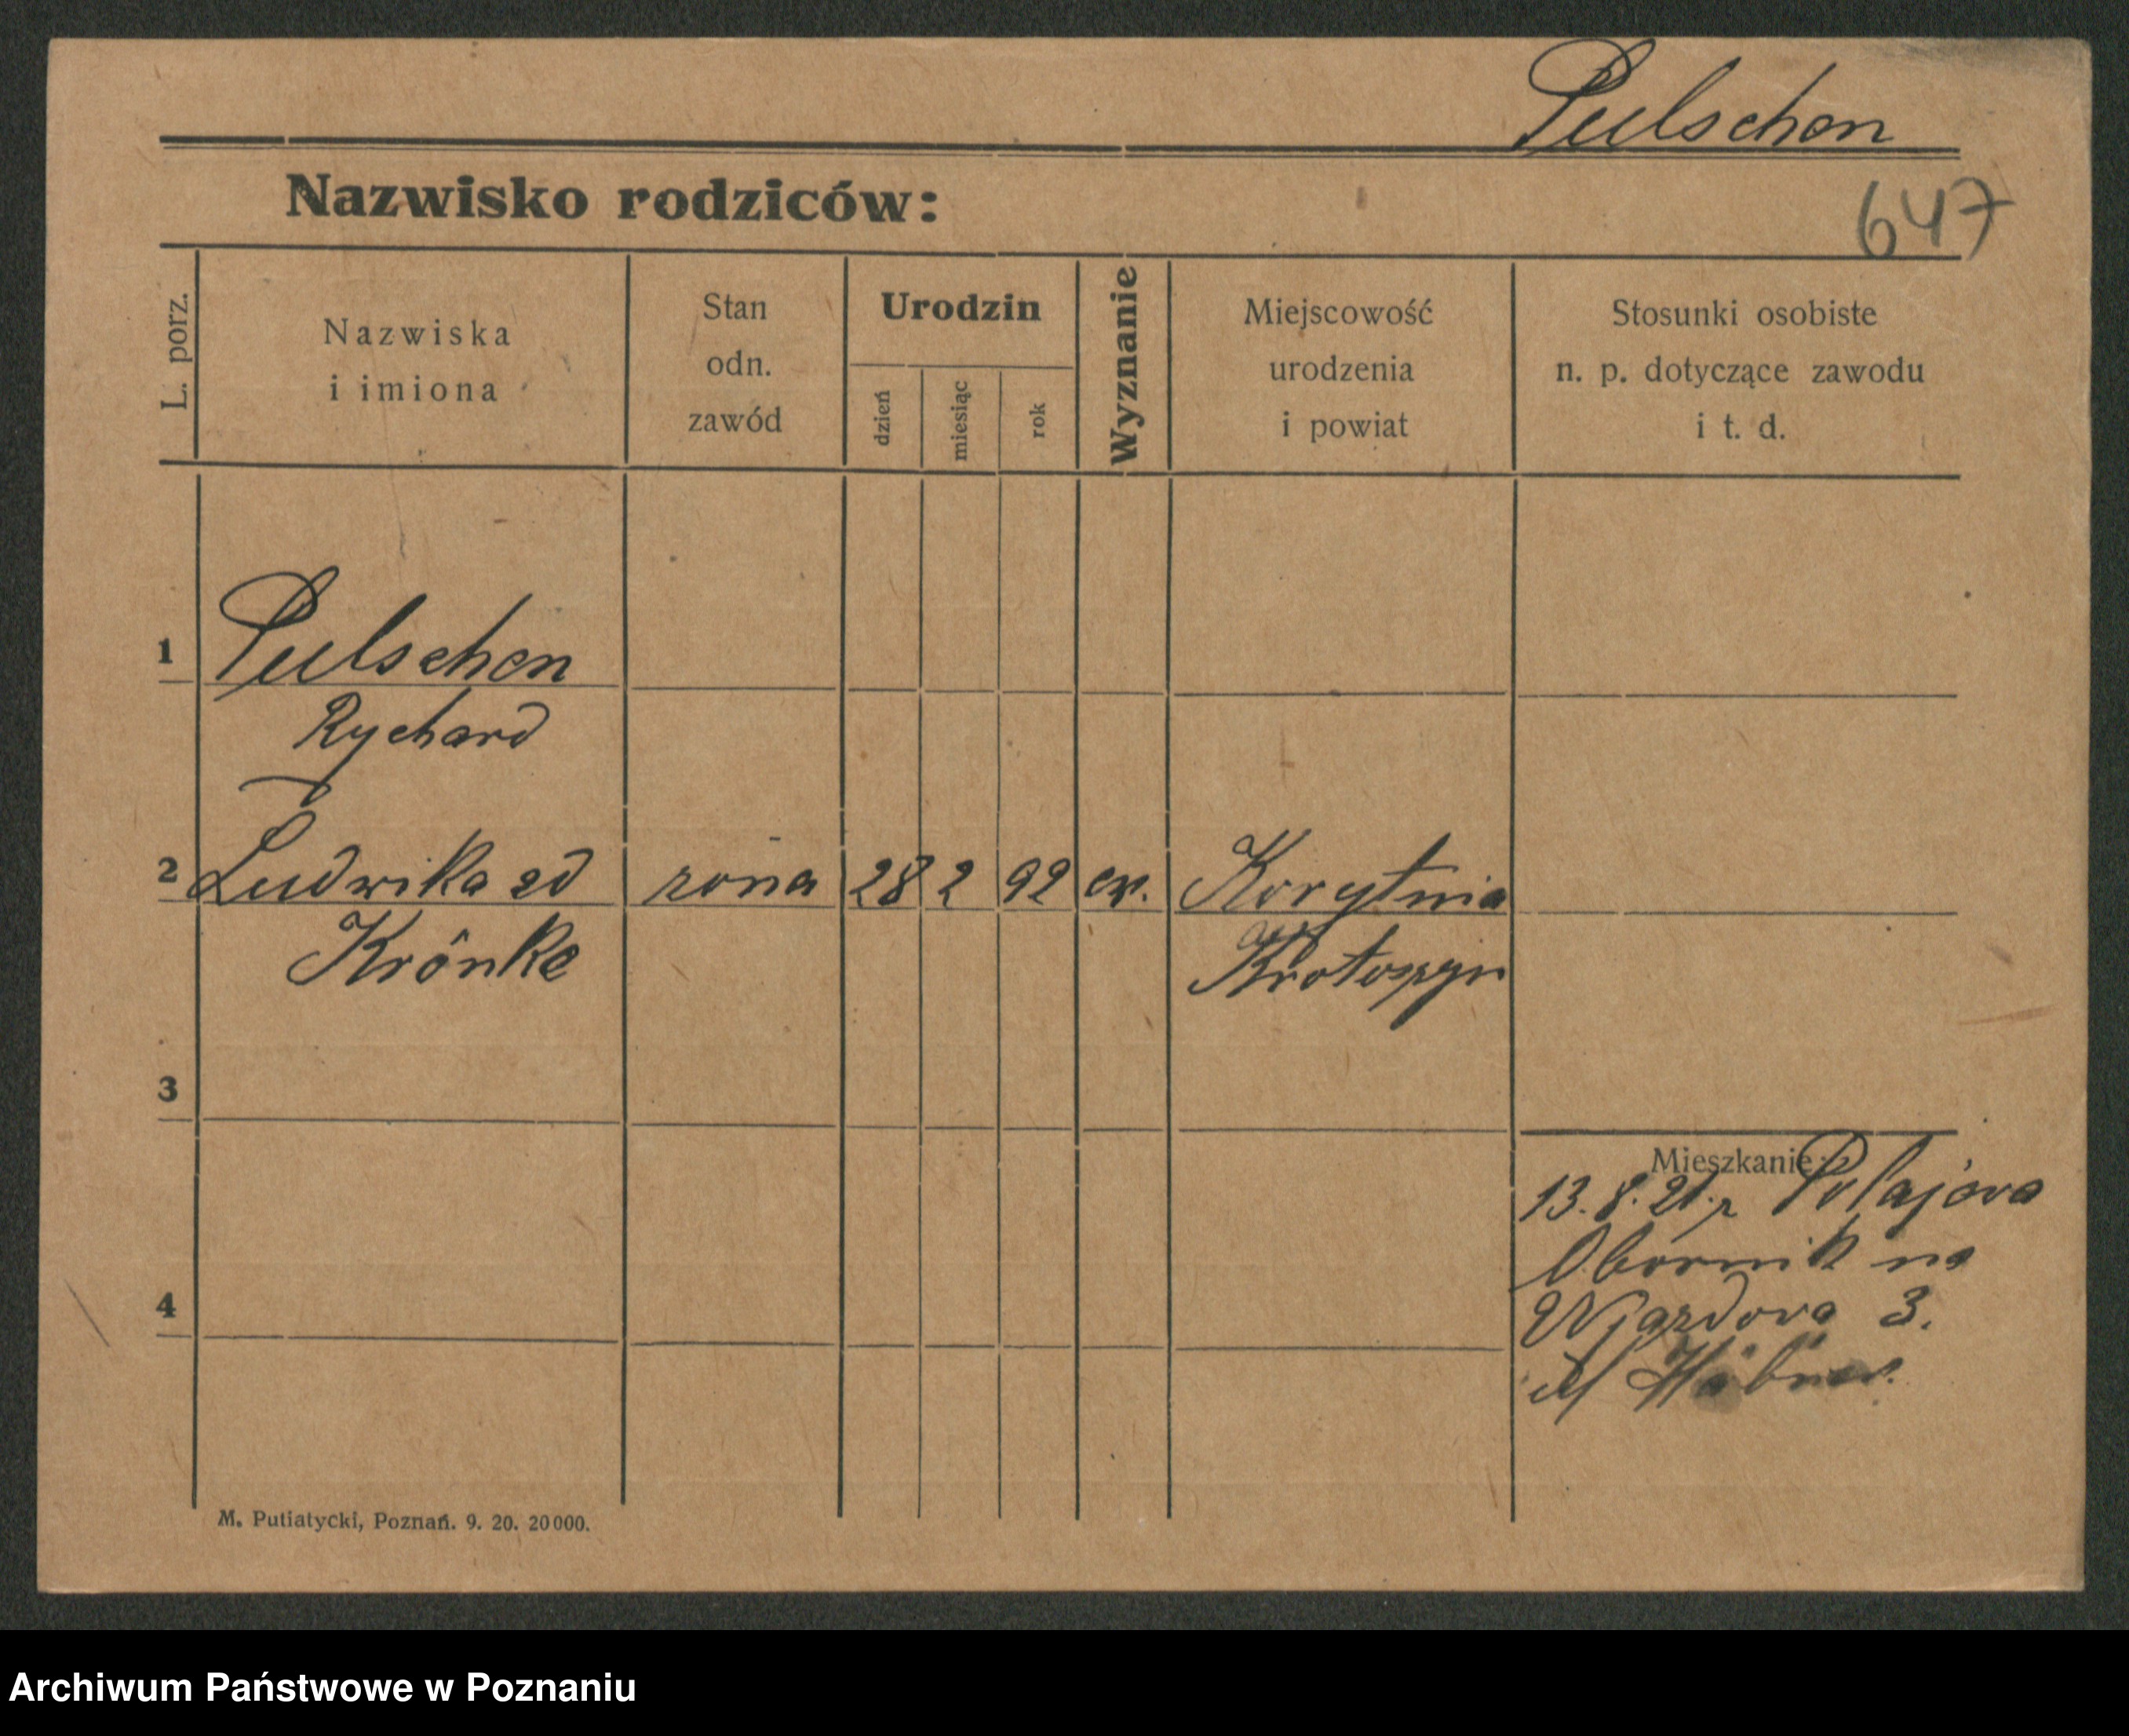 Pulschen
Nazwisko rodziców:
647
L. porz.
Nazwiska
i imiona
Stan
odn.
zawód
Urodzin
dzień
miesiąc
rok
Wyznanie
Miejscowość
urodzenia
i powiat
Stosunki osobiste
n. p. dotyczące zawodu
i t. d.
1 Pulschen
Rychard
2 Ludwika zd żona 28 2 92 ew. Korytnia
Krönke Krotoszyn
3
Mieszkanie:
13. 8. 21. z Polajova
Obornik na
Wjazdova 3.
4
M. Putiatycki, Poznań. 9. 20. 20000.
Archiwum Państwowe w Poznaniu